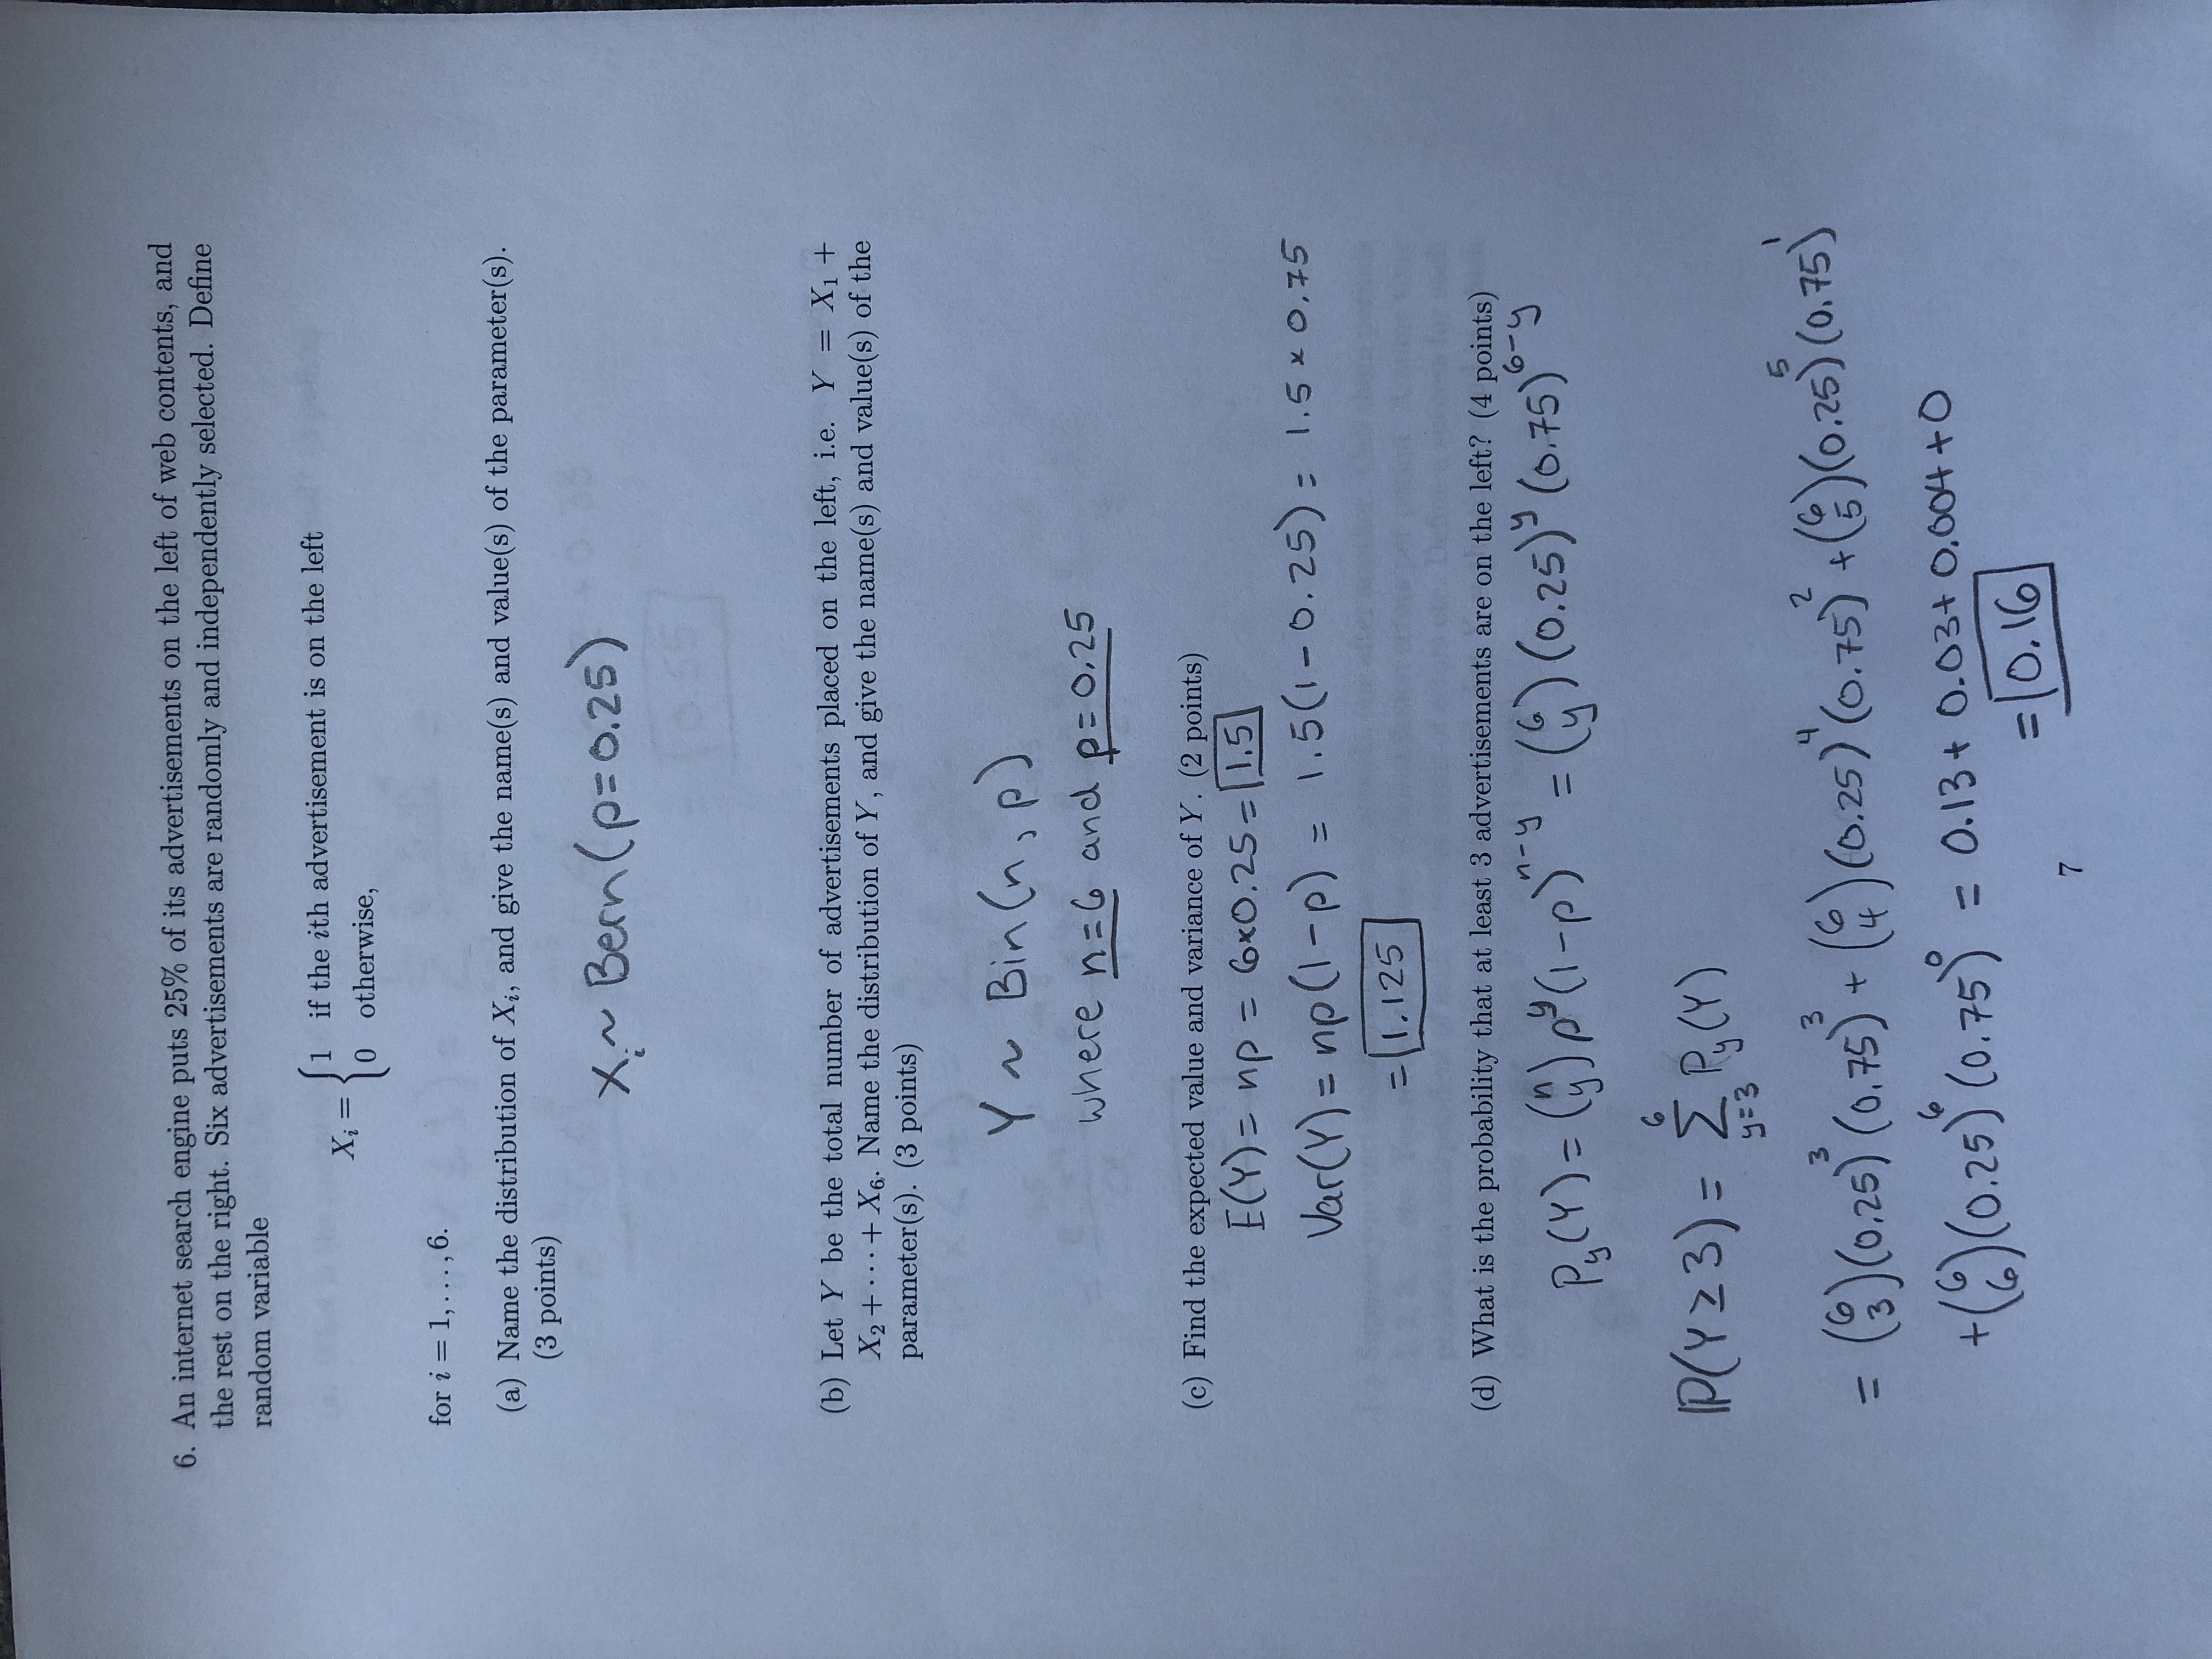 6. An internet search engine puts 25% of its advertisements on the left of web contents, and
the rest on the right. Six advertisements are randomly and independently selected. Define
random variable
X_i = { 1 if the ith advertisement is on the left
0 otherwise,
for i = 1, . . . , 6.
(a) Name the distribution of X_i, and give the name(s) and value(s) of the parameter(s).
(3 points)
X_i ~ Bern(p=0.25)
(b) Let Y be the total number of advertisements placed on the left, i.e. Y = X_1 +
X_2 + · · · + X_6. Name the distribution of Y, and give the name(s) and value(s) of the
parameter(s). (3 points)
Y ~ Bin(n, p)
where n=6 and p=0.25
(c) Find the expected value and variance of Y. (2 points)
E(Y) = np = 6×0.25 = 1.5
Var(Y) = np(1-p) = 1.5(1-0.25) = 1.5 × 0.75
= 1.125
(d) What is the probability that at least 3 advertisements are on the left? (4 points)
P_y(Y) = (n y) p^y (1-p)^{n-y} = (6 y) (0.25)^y (0.75)^{6-y}
ℙ(Y ≥ 3) = Σ_{y=3}^{6} P_y(Y)
= (6 3)(0.25)^3 (0.75)^3 + (6 4)(0.25)^4 (0.75)^2 + (6 5)(0.25)^5 (0.75)^1
+ (6 6)(0.25)^6 (0.75)^0 = 0.13 + 0.03 + 0.004 + 0
= 0.16
7